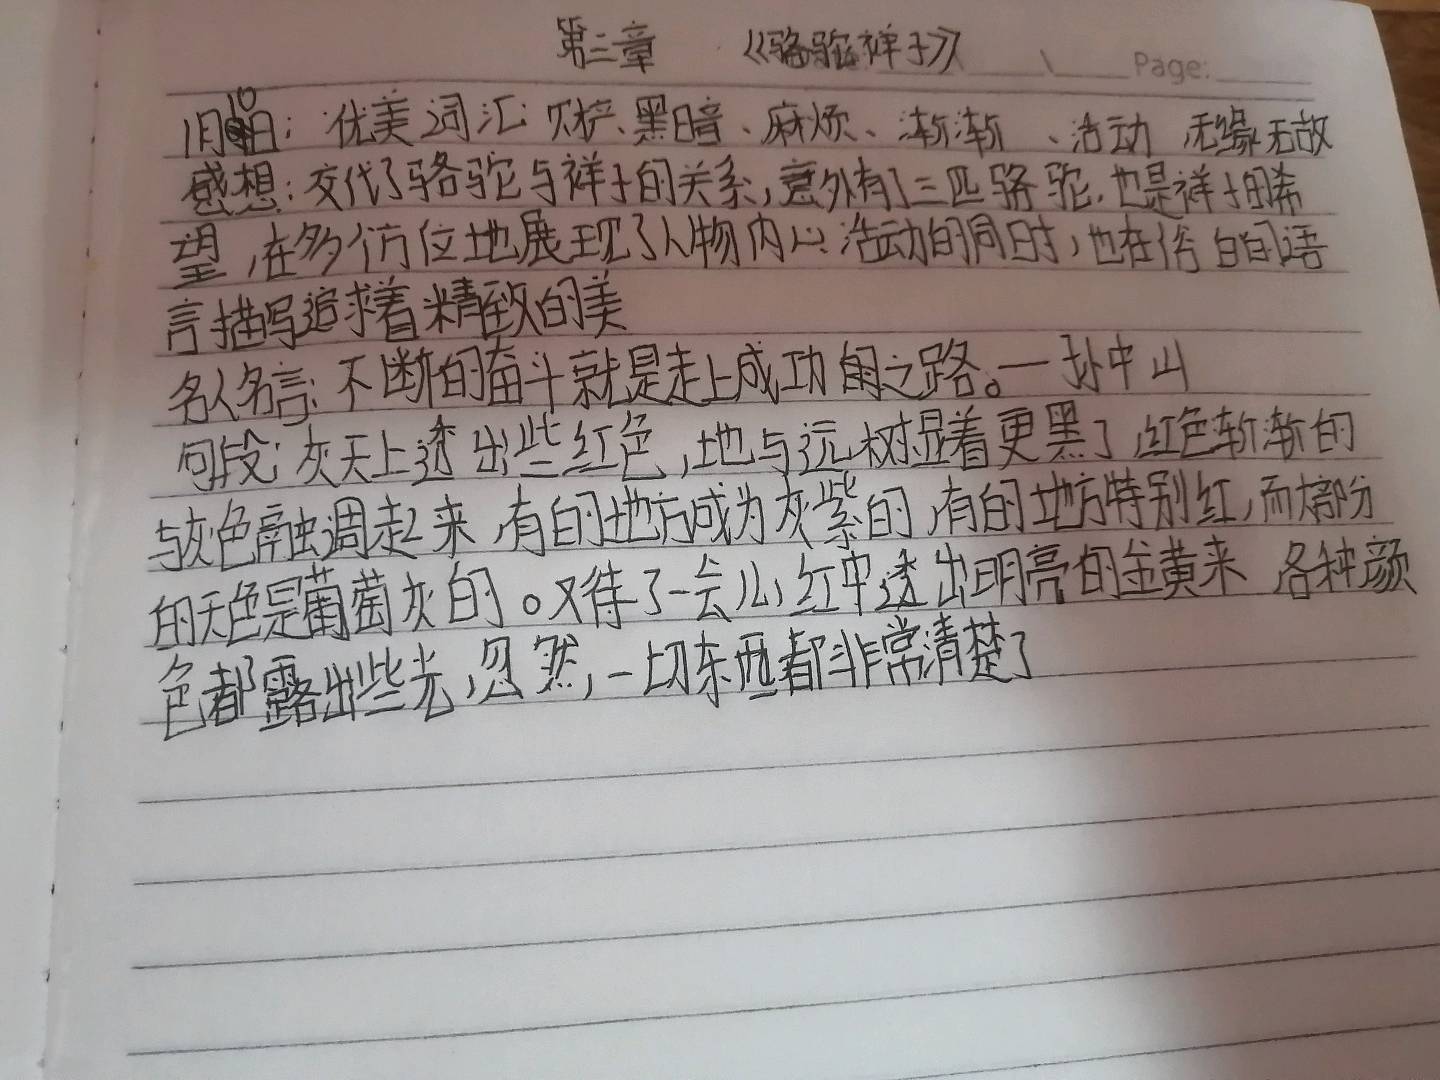 第三章 《骆驼祥子》
Page:
1月10日: 优美词汇 黑暗、麻烦、渐渐、活动 无缘无故
感想: 交代了骆驼与祥子的关系,意外有了三匹骆驼,也是祥子的希
望,在多个方位地展现了人物内心活动的同时,也在俗白的语
言描写追求着精致的美
名人名言: 不断的奋斗就是走上成功的之路。一孙中山
句段: 灰天上透出些红色,地与远树显着更黑了,红色渐渐的
与灰色融调起来,有的地方成为灰紫的,有的地方特别红,而大部分
的天色是葡萄灰的。又待了一会儿,红中透出明亮的金黄来 各种颜
色都露出些光,忽然,一切东西都非常清楚了